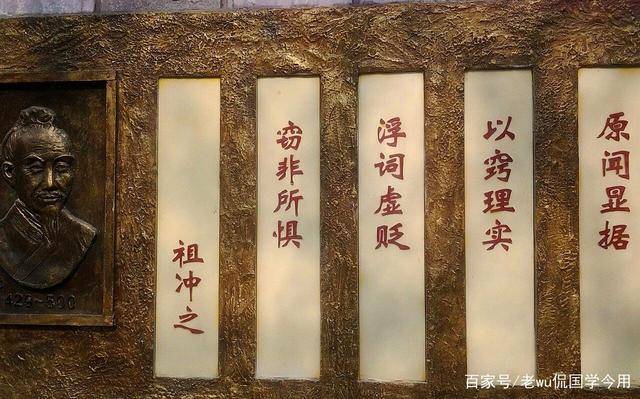 原闻显据
以窍理实
浮词虚贬
窃非所惧
祖冲之
429~500
百家号/老wu侃国学今用